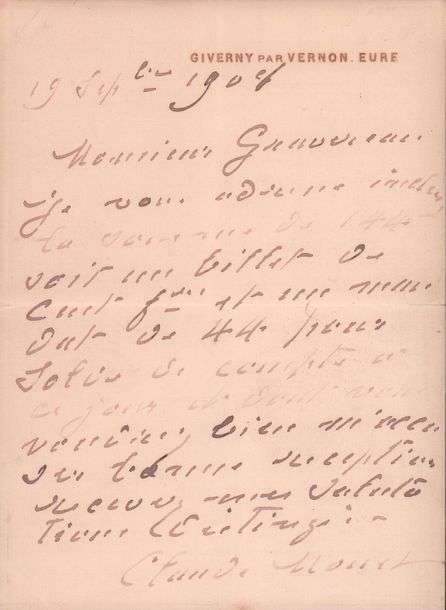 GIVERNY PAR VERNON. EURE
19 Sept bre 190
Monsieur
je vous adresse inclus
la somme de 144
soit un billet de
cent f et un man
dat de 44 pour
solde de compte à
ce jour et dont vous
voudrez bien m'accu
ser bonne réception
recevez mes saluta
tions distinguées
Claude Monet